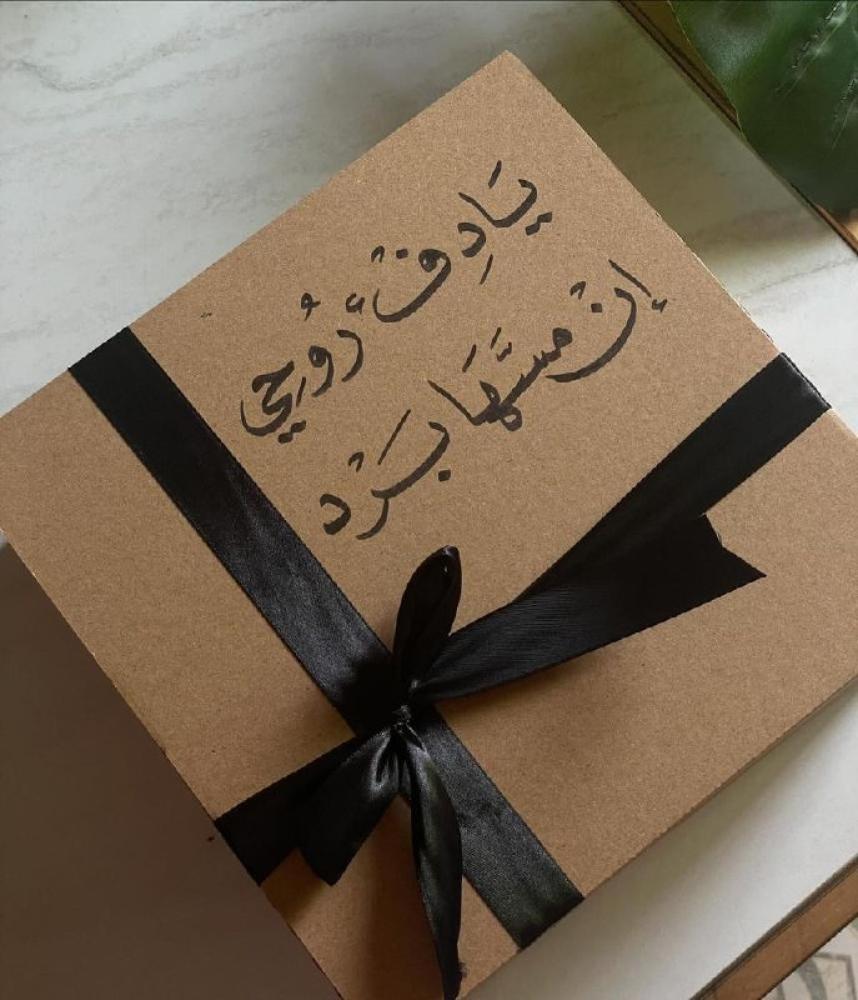 يَا دِفْءَ رُوحِي
إنْ مسَّهَا بَرَد